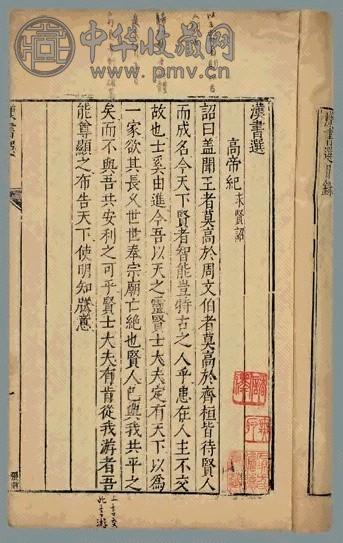 中华收藏网
www.pmv.cn
漢書選
高帝紀 求賢詔
詔曰盖聞王者莫高於周文伯者莫高於齊桓皆待賢人
而成名今天下賢者智能豈特古之人乎患在人主不交
故也士奚由進今吾以天之靈賢士大夫定有天下以為
一家欲其長乆世世奉宗廟亡絶也賢人已與我共平之
矣而不與吾共安利之可乎賢士大夫有肯從我游者吾
能尊顯之布告天下使明知朕意
漢書選
漢書選目錄